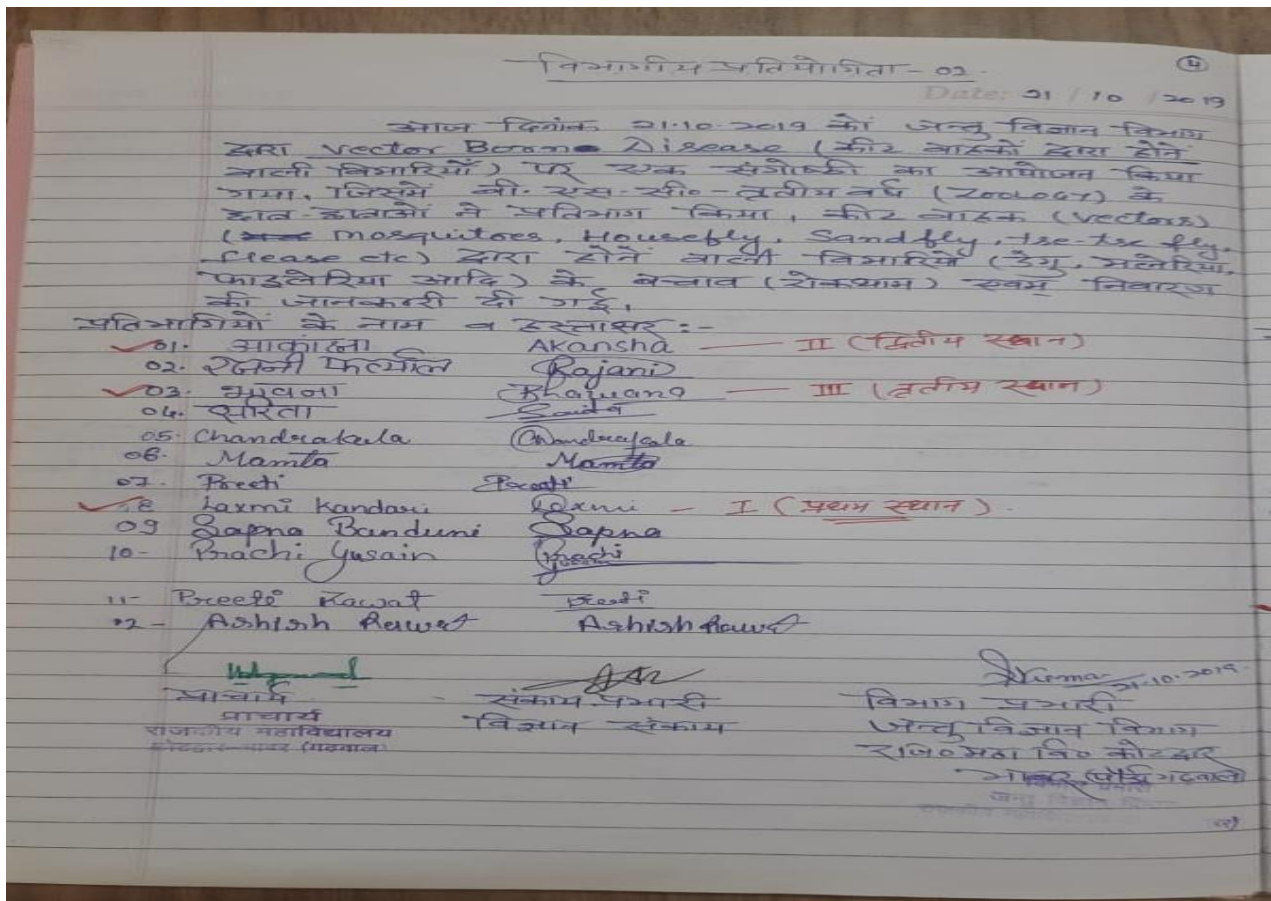 विभागीय प्रतियोगिता - 02.
4
Date: 21 / 10 / 2019
आज दिनांक 21.10.2019 को जन्तु विज्ञान विभाग
द्वारा Vector Boone Disease (कीट वाहकों द्वारा होने
वाली बिमारियाँ) पर एक संगोष्ठी का आयोजन किया
गया, जिसमें बी.एस.सी० - तृतीय वर्ष (ZOOLOGY) के
छात्र-छात्राओं ने प्रतिभाग किया, कीट वाहक (vectors)
(mosquitoes, Housefly, Sandfly, tse-tse fly,
etc) द्वारा होने वाली बिमारियों (डेंगु, मलेरिया,
फाइलेरिया आदि) के बचाव (रोकथाम) एवम् निवारण
की जानकारी दी गई,
प्रतिभागियों के नाम व हस्ताक्षर :-
01. आकांक्षा Akansha — II (द्वितीय स्थान)
02. रजनी फर्त्याल Rajani
03. भावना Bhawana — III (तृतीय स्थान)
04. सरिता Sarita
05. Chandrakala Chandrakala
06. Mamta Mamta
07. Preeti Preeti
8 Laxmi Kandari Laxmi - I (प्रथम स्थान).
09 Sapna Banduni Sapna
10- Prachi Gusain Prachi
11- Preeti Rawat Preeti
12- Ashish Rawat Ashish Rawat
21-10-2019
प्राचार्य संकाय प्रभारी विभाग प्रभारी
प्राचार्य विज्ञान संकाय जन्तु विज्ञान विभाग
राजकीय महाविद्यालय
कोटद्वार भाबर (गढ़वाल)
रा०महा०वि० कोटद्वार
भाबर (पौड़ी गढ़वाल)